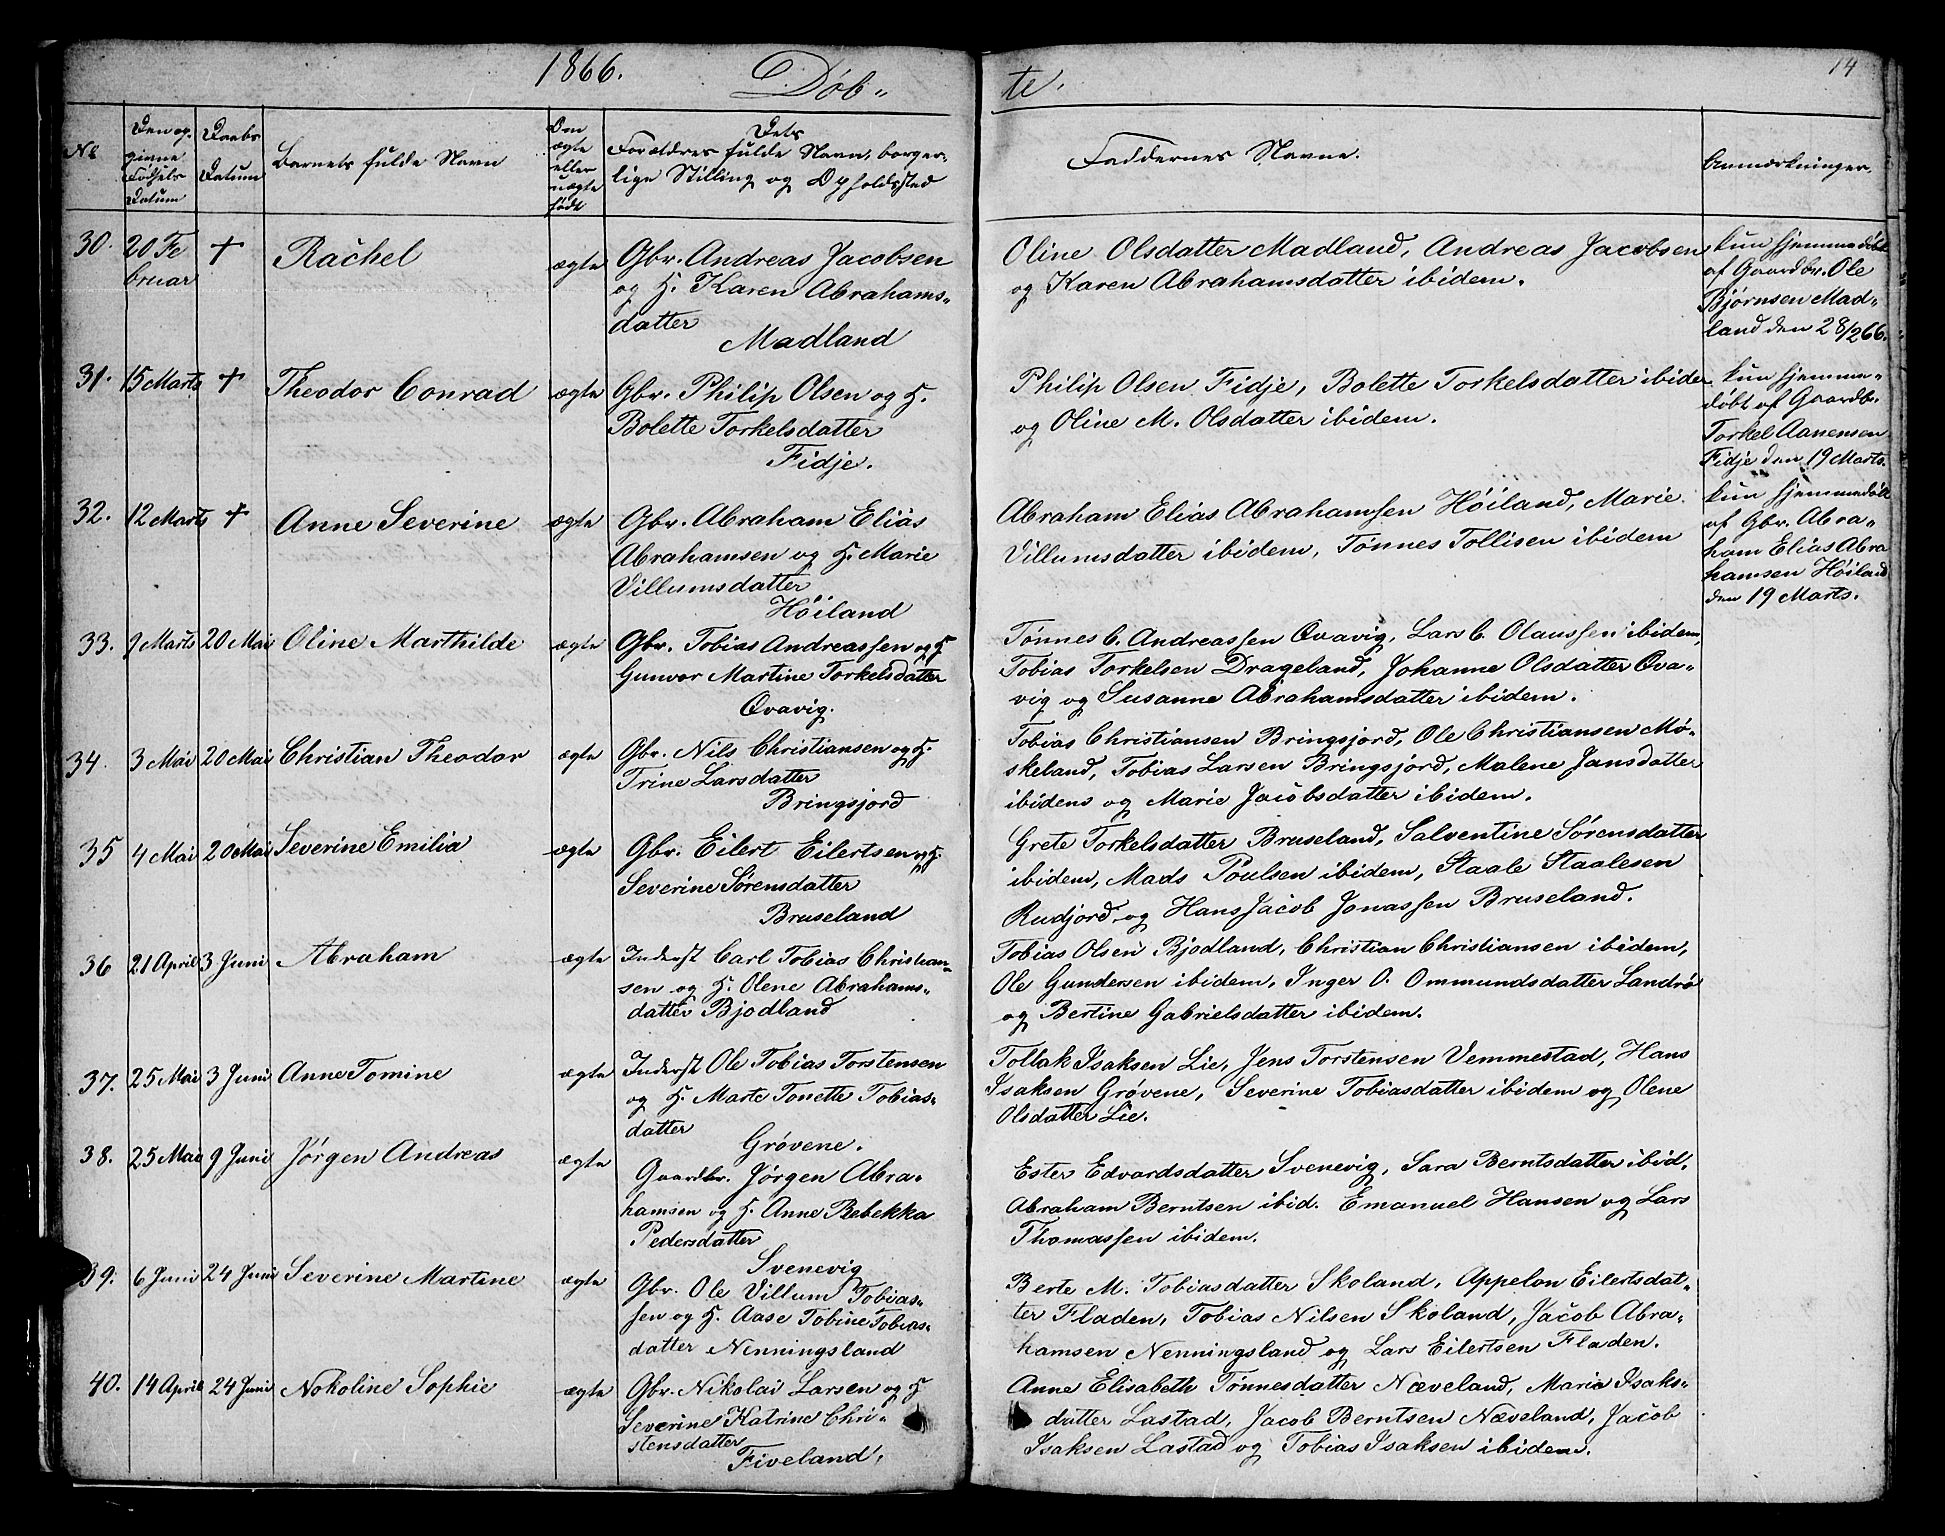 1866. Døb- te. 14
No
Den op-
givne
Fødsels
Datum
Daabs
Datum
Barnets fulde Navn
Om
ægte
eller
uægte
født
Dets
Forældres fulde Navn, borger-
lige Stilling og Opholdssted
Faddernes Navne.
Anmærkninger.
30. 20 Fe
bruar
+ Rachel ægte
Gbr. Andreas Jacobsen
og H. Karen Abrahams-
datter
Madland
Oline Olsdatter Madland, Andreas Jacobsen
og Karen Abrahamsdatter ibidem.
kun hjemmedøbt
af Gaardbr. Ole
Bjørnsen Mad-
land den 28/2 66.
31. 15 Marts + Theodor Conrad ægte
Gbr. Philip Olsen og H.
Bolette Torkelsdatter
Fidje.
Philip Olsen Fidje, Bolette Torkelsdatter ibidem
og Oline M. Olsdatter ibidem.
kun hjemme-
døbt af Gaardb.
Torkel Aanensen
Fidje den 19 Marts.
32. 12 Marts + Anne Severine ægte
Gbr. Abraham Elias
Abrahamsen og H. Marie
Villumsdatter
Høiland
Abraham Elias Abrahamsen Høiland, Marie
Villumsdatter ibidem, Tønnes Tollisen ibidem
kun hjemmedøbt
af Gbr. Abra-
ham Elias Abra
hamsen Høiland
den 19 Marts.
33. 9 Marts 20 Mai Oline Marthilde ægte
Gbr. Tobias Andreassen og H
Gunvor Martine Torkelsdatter
Qvavig.
Tønnes C. Andreassen Qvavig, Lars C. Olaussen ibidem,
Tobias Torkelsen Drageland, Johanne Olsdatter Qva-
vig og Susanne Abrahamsdatter ibidem.
34. 3 Mai 20 Mai Christian Theodor ægte
Gbr. Nils Christiansen og H.
Trine Larsdatter
Bringsjord
Tobias Christiansen Bringsjord, Ole Christiansen Mø-
skeland, Tobias Larsen Bringsjord, Malene Jansdatter
ibidens og Marie Jacobsdatter ibidem.
35 4 Mai 20 Mai Severine Emilia ægte
Gbr. Eilert Eilertsen og H.
Severine Sørensdatter
Bruseland
Grete Torkelsdatter Bruseland, Salventine Sørensdatter
ibidem, Mads Poulsen ibidem, Staale Staalesen
Rudjord og Hans Jacob Jonassen Bruseland.
36 21 April 3 Juni Abraham ægte
Inderst Carl Tobias Christian-
sen og H. Olene Abrahams-
datter Bjodland
Tobias Olsen Bjodland, Christian Christiansen ibidem,
Ole Gundersen ibidem, Inger O. Ommundsdatter Landrø
og Bertine Gabrielsdatter ibidem.
37. 25 Mai 3 Juni Anne Tomine ægte
Inderst Ole Tobias Torstensen
og H. Marte Tonette Tobias-
datter
Grøvene.
Tollak Isaksen Lie, Jens Torstensen Vemmestad, Hans
Isaksen Grøvene, Severine Tobiasdatter ibidem og Olene
Olsdatter Lie.
38. 25 Mai 9 Juni Jørgen Andreas ægte
Gaardbr. Jørgen Abra-
hamsen og H. Anne Rebekka
Pedersdatter
Svenevig
Ester Edvardsdatter Svenevig, Sara Berntsdatter ibid,
Abraham Berntsen ibid. Emanuel Hansen og Lars
Thomassen ibidem.
39. 6 Juni 24 Juni Severine Martine ægte
Gbr. Ole Villum Tobias-
sen og H. Aase Tobine Tobias-
datter Nenningsland
Berte M. Tobiasdatter Skoland, Appelon Eilertsdat-
ter Fladen, Tobias Nilsen Skoland, Jacob Abra-
hamsen Nenningsland og Lars Eilertsen Fladen.
40. 14 April 24 Juni Nokoline Sophie ægte
Gbr. Nikolai Larsen og H
Severine Katrine Chri-
stensdatter
Fiveland,
Anne Elisabeth Tønnesdatter Næveland, Maria Isaks-
datter Lastad, Jacob Berntsen Næveland, Jacob
Isaksen Lastad og Tobias Isaksen ibidem.